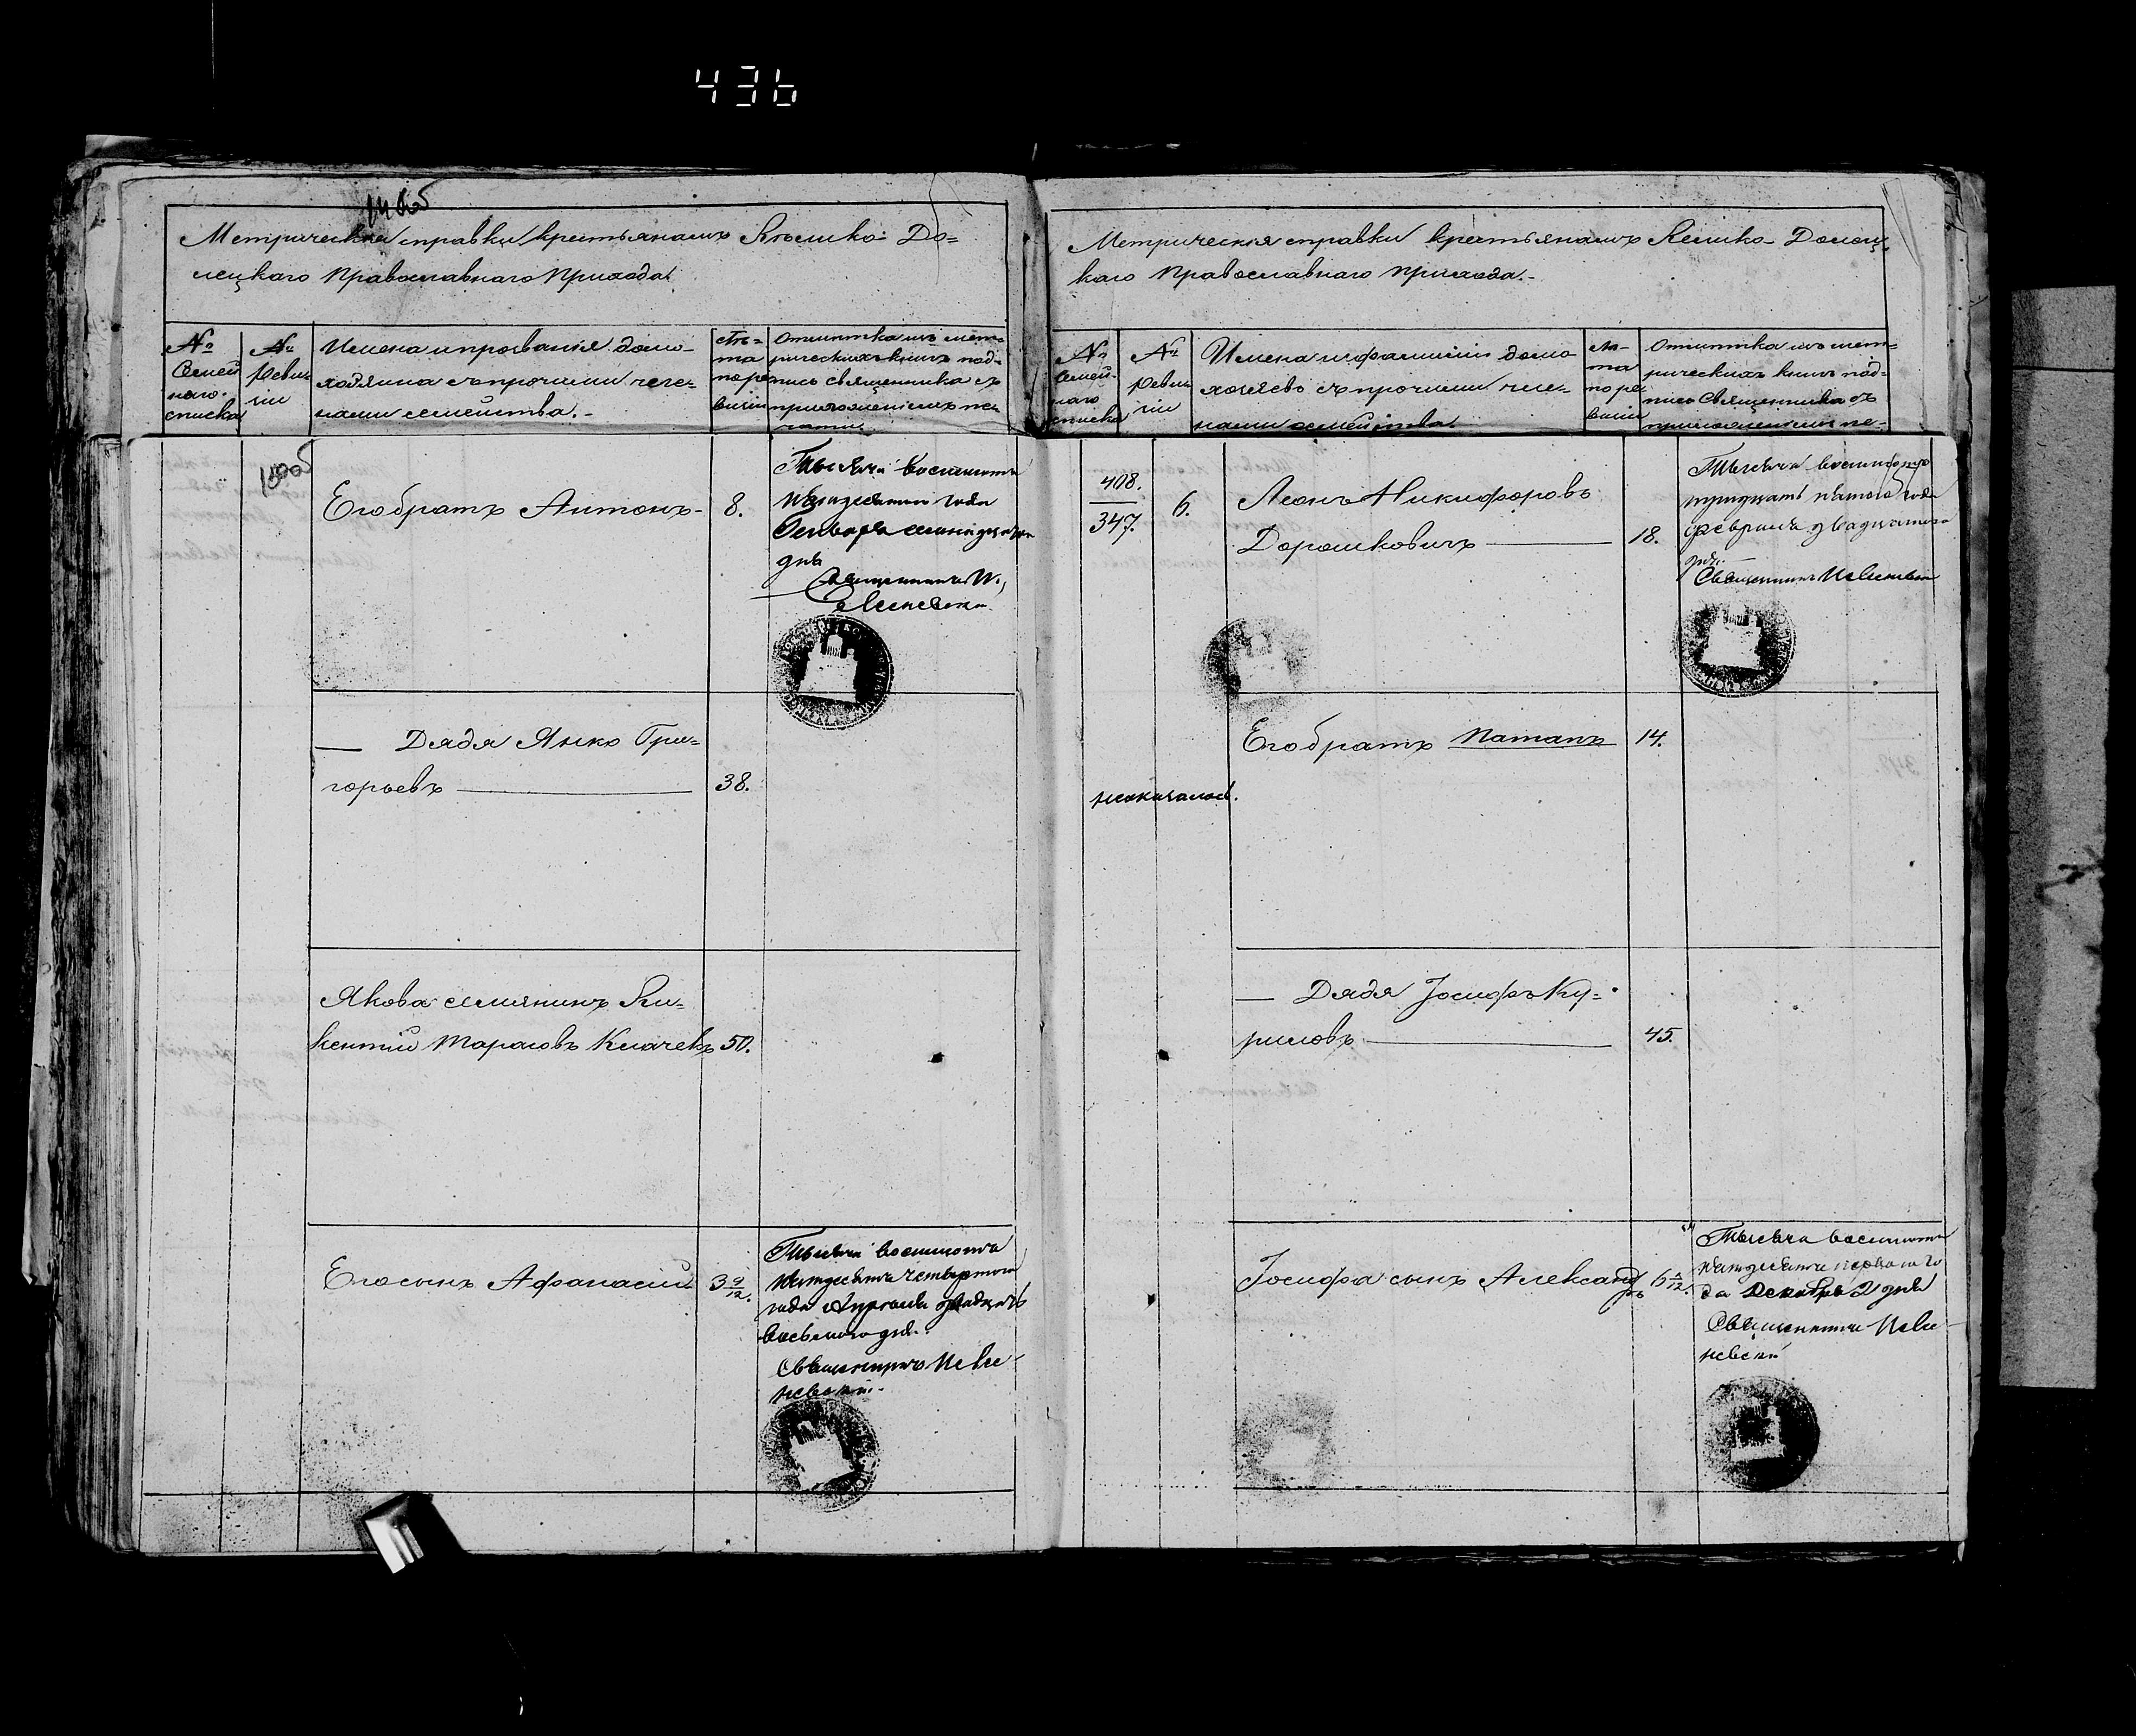 436
Метрическія справки крестьянамъ Велико-До=
лецкаго Православнаго Прихода.
№
Семей
наго
списка
№
Реви
зіи
Имена и прозванія домо-
хозяина съ прочими чле-
нами семейства.-
Лѣ=
та
по ре
визіи
Отмѣтка изъ мет=
рическихъ книгъ под=
пись священника съ
приложеніемъ пе-
чати
Его братъ Антонъ-
8.
Тысяча восемьсотъ
пятидесятаго года
Генваря
дня
Священникъ
Дядя Янко Гри=
горьевъ
38.
Якова семянинъ Ви=
кентій Тарасовъ
50.
Его сынъ Афанасій
3 9/12.
Тысяча восемьсотъ
пятьдесятъ четвертого
года Апреля двадцать
восьмого дня.
Священникъ
Метрическія справки крестьянамъ Велико-Долец-
каго Православнаго Прихода.-
№
Семей-
наго
списка
№
Реви
зіи
Имена и фамиліи домо
хозяевъ съ прочими чле-
нами семейства
Лѣ-
та
по ре
визіи
Отмѣтка изъ мет=
рическихъ книгъ под=
пись Священника съ
приложеніемъ пе-
408.
347.
6.
Леонъ Никифоровъ
Дорошковичъ
18.
Тысяча восемьсотъ
тридцать пятого года
февраля двадцатого
дня.
Священникъ
Его братъ Патапъ
14.
неокичалось.
Дядя Іосифъ Ку=
риловъ
45.
Іосифа сынъ Александръ
6 /12.
Тысяча восемьсотъ
пятьдесятъ первого го
да Декабря 2 дня
Священникъ